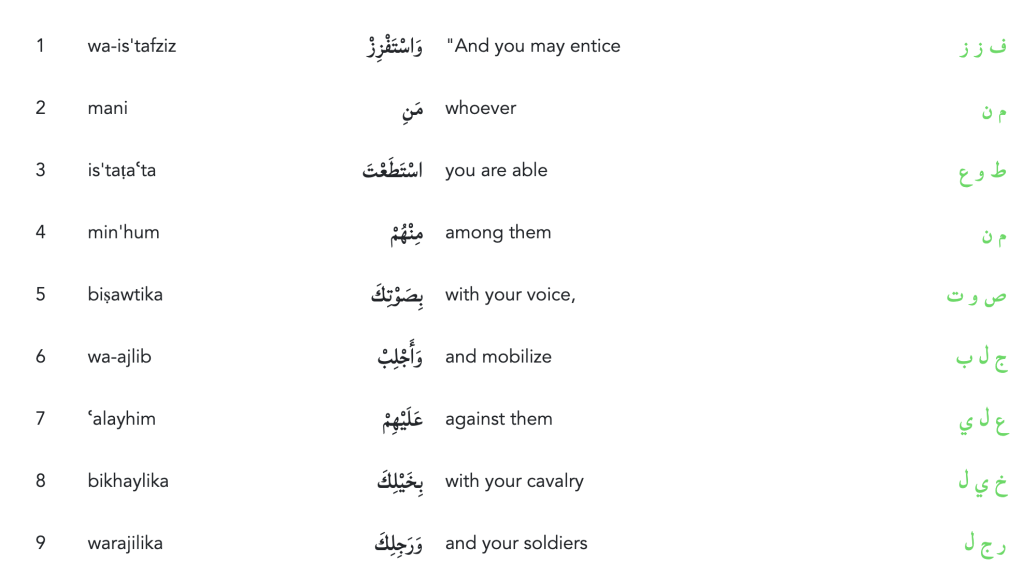 1 wa-is'tafziz وَاسْتَفْزِزْ "And you may entice ف ز ز
2 mani مَنِ whoever م ن
3 is'taṭaʿta اسْتَطَعْتَ you are able ط و ع
4 min'hum مِنْهُمْ among them م ن
5 biṣawtika بِصَوْتِكَ with your voice, ص و ت
6 wa-ajlib وَأَجْلِبْ and mobilize ج ل ب
7 ʿalayhim عَلَيْهِمْ against them ع ل ي
8 bikhaylika بِخَيْلِكَ with your cavalry خ ي ل
9 warajilika وَرَجِلِكَ and your soldiers ر ج ل